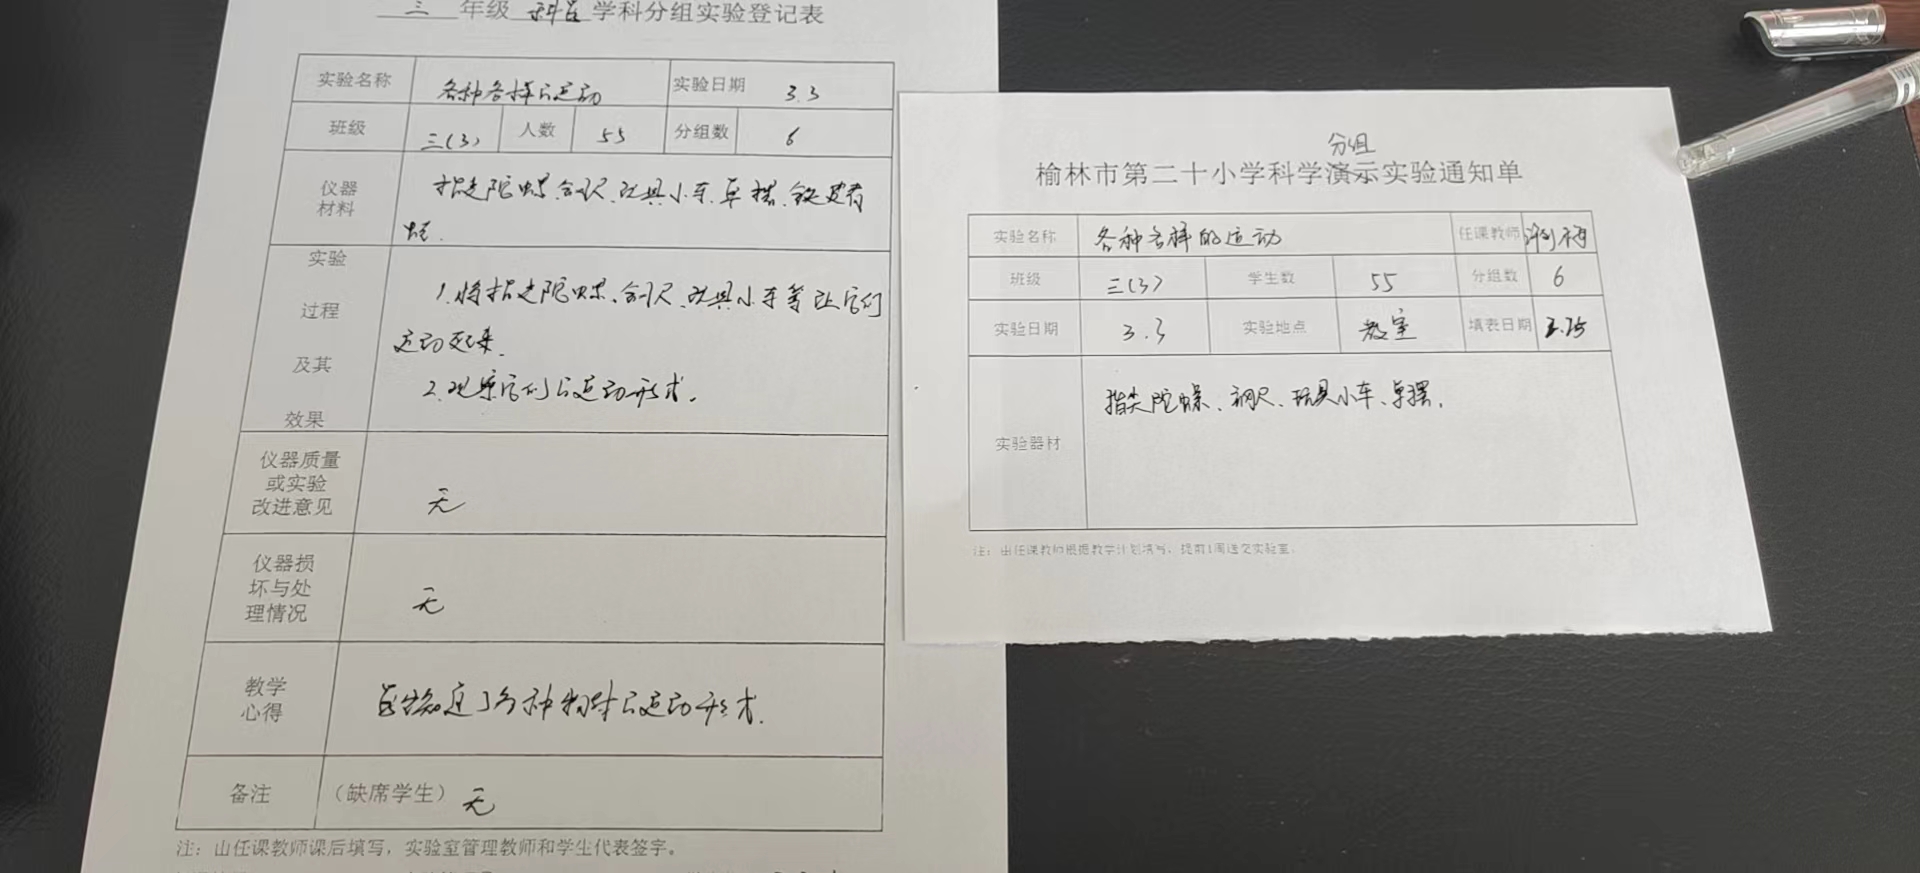 三 年级 科学 学科分组实验登记表
实验名称 各种各样的运动 实验日期 3.3
班级 三(3) 人数 55 分组数 6
仪器材料 指尖陀螺、钢尺、玩具小车、单摆、
实验过程及其效果
1.将指尖陀螺、钢尺、玩具小车等让它们
运动起来.
2.观察它们的运动形式.
仪器质量或实验改进意见 无
仪器损坏与处理情况 无
教学心得 了各种物体的运动形式.
备注 (缺席学生) 无
注：由任课教师课后填写，实验室管理教师和学生代表签字。
分组
榆林市第二十小学科学演示实验通知单
实验名称 各种各样的运动 任课教师
班级 三(3) 学生数 55 分组数 6
实验日期 3.3 实验地点 教室 填表日期
实验器材 指尖陀螺、钢尺、玩具小车、单摆.
注：由任课教师根据教学计划填写，提前1周送交实验室。